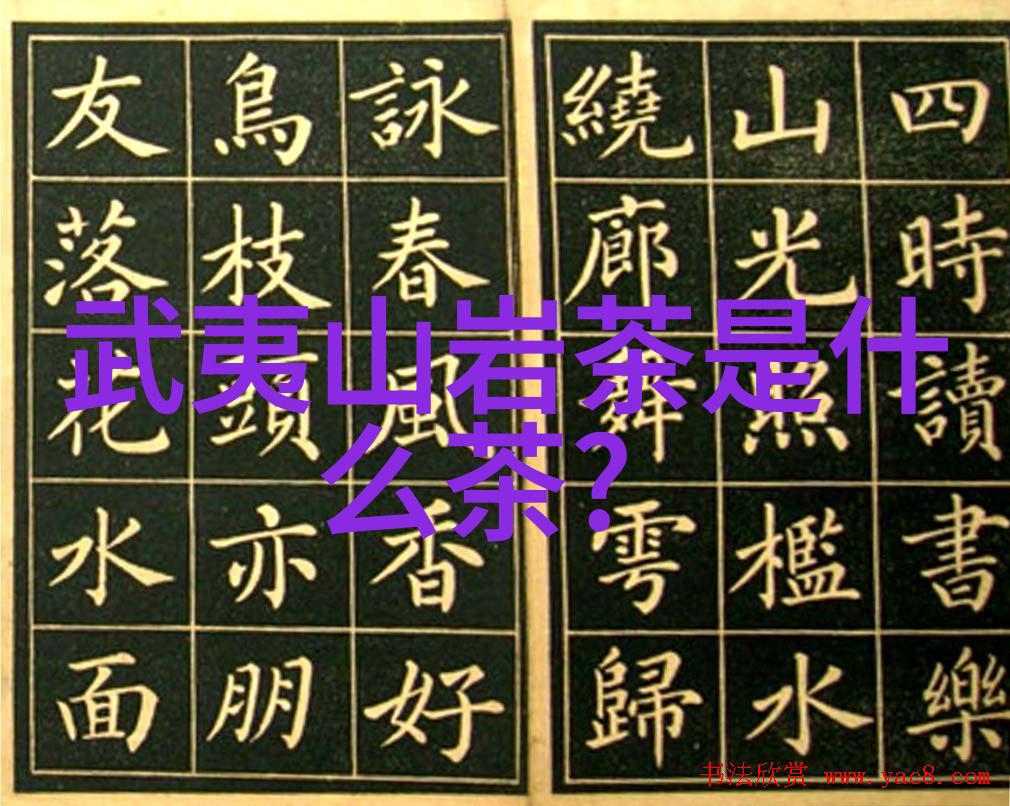 四時讀書樂
山光照檻水
繞廊舞雩歸
詠春風香好
鳥枝頭亦朋
友落花水面
武夷山岩茶是什
么茶?
书法欣赏 www.yac8.com